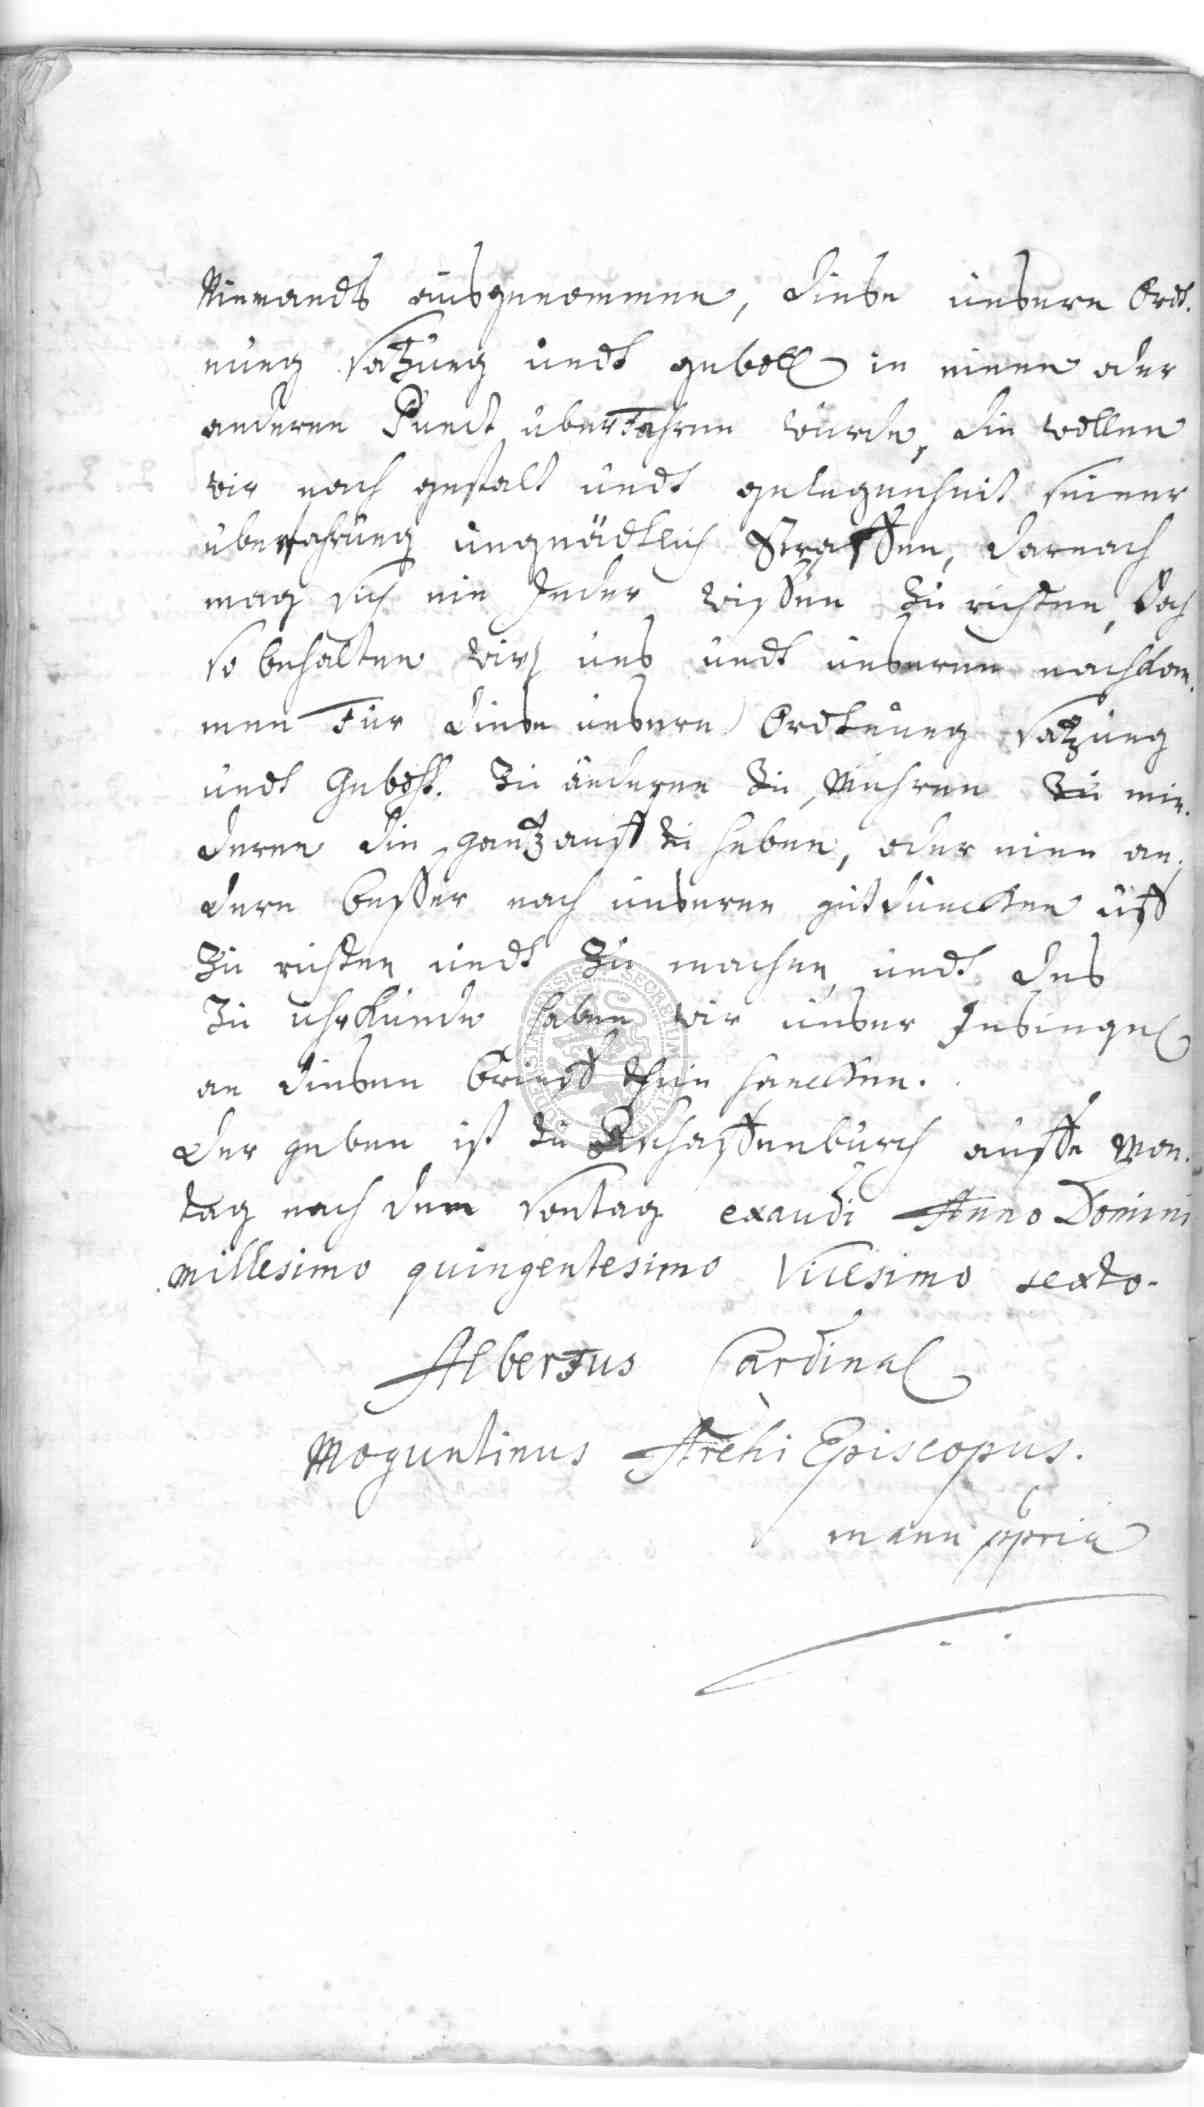 Niemandts ausgenommen, diese unsere Ordt-
nung Satzung undt gebott in einen oder
anderen Punct überfahren würde, die wollen
wir nach gestalt undt gelegenheit seiner
überfahrung ungnädtlich Straffen, darnach
mag sich ein Jeder wissen zu richten, Doch
so behalten wir uns undt unseren nachkom-
men für diese unsere Ordtnung Satzung
undt Gebott. Zu änderen zu Mehren zu min-
deren die gantz auff zu heben, oder eine an-
dere besser nach unseren gutduncken uff
zu richten undt zu machen, undt des
zu uhrkunde haben wir unser Insiegel
an diesen Brieff thun hencken.
Der geben ist zu Aschaffenburch auffe Mon-
tag nach dem Sontag exaudi Anno Domini
millesimo quingentesimo Vicesimo sexto.
Albertus Cardinal
Moguntinus Archi Episcopus.
manu ppria